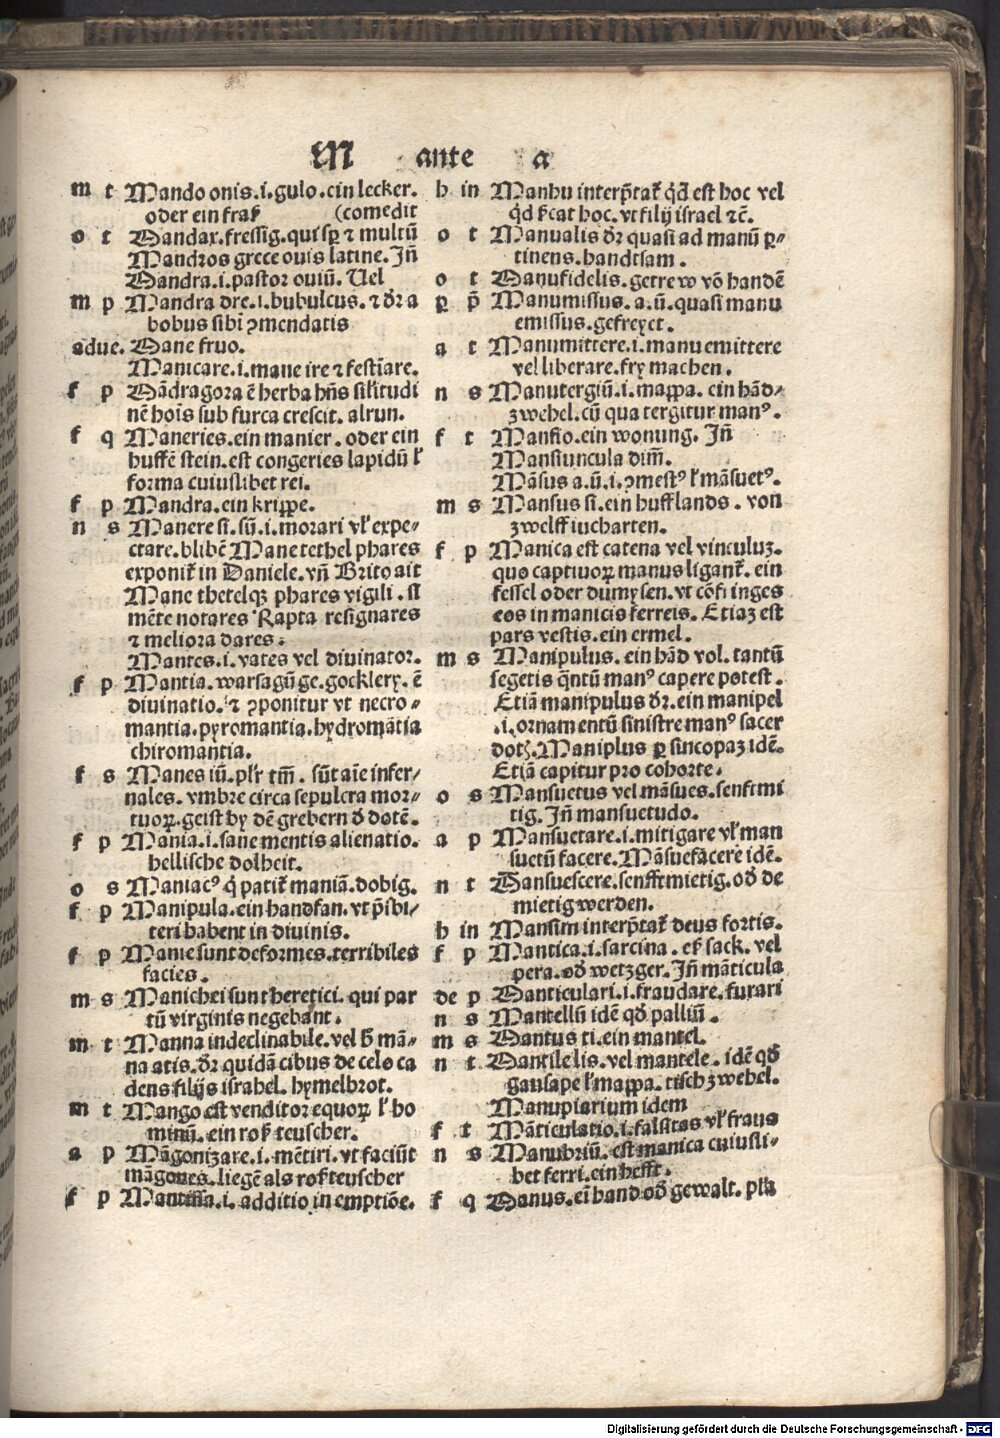 M ante a
m t Mando onis.i.gulo.ein lecker.
oder ein fraß (comedit
o t Mandax.fressig.qui sꝑ ⁊ multū
Mandros grece ouis latine. Jñ
Mandra.i.pastor ouiū. Uel
m p Mandra dre.i.bubulcus. ⁊ dr̄ a
bobus sibi ꝯmendatis
adue. Mane fruo.
Manicare.i.mane ire ⁊ festiare.
f p Mādragora ē herba hn̄s silitudi
nē hoīs sub furca crescit. alrun.
f q Maneries.ein manier. oder ein
huffē stein.est congeries lapidū ł
forma cuiuslibet rei.
f p Mandra.ein krippe.
n s Manere si.sū.i.morari vł expe⸗
ctare.blibē Mane tethel phares
exponit̄ in Daniele.vn̄ Brito ait
Mane thetelqꝫ phares vigili. si
mēte notares Rapta resignares
⁊ meliora dares:
Mantes.i.vates vel diuinator.
f p Mantia.warsagūge.gocklery. ē
diuinatio. ⁊ ꝓponitur vt necro⸗
mantia.pyromantia.hydromātia
chiromantia.
f s Manes iū.plr̄ tm̄. sūt aīe infer⸗
nales.vmbre circa sepulcra mor⸗
tuoꝝ.geist by dē grebern d̄ dotē.
f p Mania.i.sane mentis alienatio.
hellische dolheit.
o s Maniacꝰ q̇ patit̄ maniā.dobig.
f p Manipula.ein handfan. vt p̄sbi⸗
teri habent in diuinis.
f p Manie sunt deformes.terribiles
facies.
m s Manichei sunt heretici. qui par
tū virginis negebant.
m t Manna indeclinabile.vel h̄ mā⸗
na atis.dr̄ quidā cibus de celo ca
dens filijs israhel. hymelbrot.
m t Mango est venditor equoꝝ ł ho
minū.ein roß teuscher.
a p Māgonizare.i.mētiri. vt faciūt
māgones.liegē als roß teuscher
f p Mantissa.i. additio in emptiōe.
h in Manhu interp̄tat̄ q̇d est hoc vel
q̇d s̄cat hoc. vt filij israel ⁊c̄.
o t Manualis dr̄ quasi ad manū ꝑ⸗
tinens.handtsam.
o t Manufidelis.getrew vō handē
ꝑ p̄ Manumissus.a.ū.quasi manu
emissus.gefreyet.
a t Manumittere.i.manu emittere
vel liberare.fry machen.
n s Manutergiū.i.mappa. ein hād⸗
zwehel.cū qua tergitur manꝰ.
f t Mansio.ein wonung. Jñ
Mansiuncula dim̄.
Māsus a.ū.i.ꝯmestꝰ ł māsuetꝰ.
m s Mansus si.ein hufflands. von
zwelff iucharten.
f p Manica est catena vel vinculuꝫ.
quo captiuoꝝ manus ligant̄. ein
fessel oder dumysen.vt cōf̄i inges
eos in manicis ferreis. Etiaꝫ est
pars vestis.ein ermel.
m s Manipulus. ein hād vol. tantū
segetis q̄ntū manꝰ capere potest.
Etiā manipulus dr̄.ein manipel
.i.ornamentū sinistre manꝰ sacer
doтꝭ.Maniplus ꝑ sincopaꝫ idē.
Etiā capitur pro cohorte.
o s Mansuetus vel māsues.senftmi
tig. Jn̄ mansuetudo.
a p Mansuetare.i.mitigare vł man
suetū facere.Māsuefacere idē.
n t Mansuescere.senfftmietig.od̄ de
mietig werden.
h in Mansim interp̄tat̄ deus fortis.
f p Mantica.i.sarcina. eß sack. vel
pera.od̄ wetzger. Jn̄ māticula
de p Manticulari.i.fraudare.furari
n s Mantellū idē qd̄ palliū.
m s Mantus ti.ein mantel.
n t Mantile lis. vel mantele. idē qd̄
gausape ł mappa. tischzwehel.
Manupiarium idem
f t Māticulatio.i.falsitas vł fraus
n s Manubriū. est manica cuiusli⸗
bet ferri.ein hefft.
f q Manus. ei hand od̄ gewalt. pła
Digitalisierung gefördert durch die Deutsche Forschungsgemeinschaft - DFG